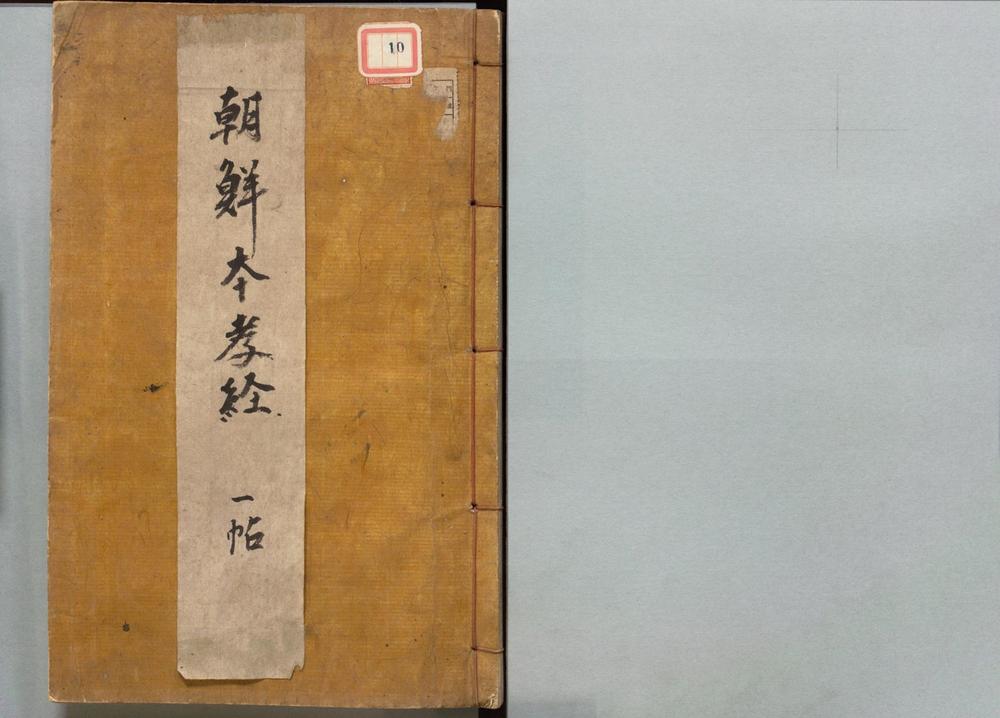 朝鮮本孝経 一帖
10